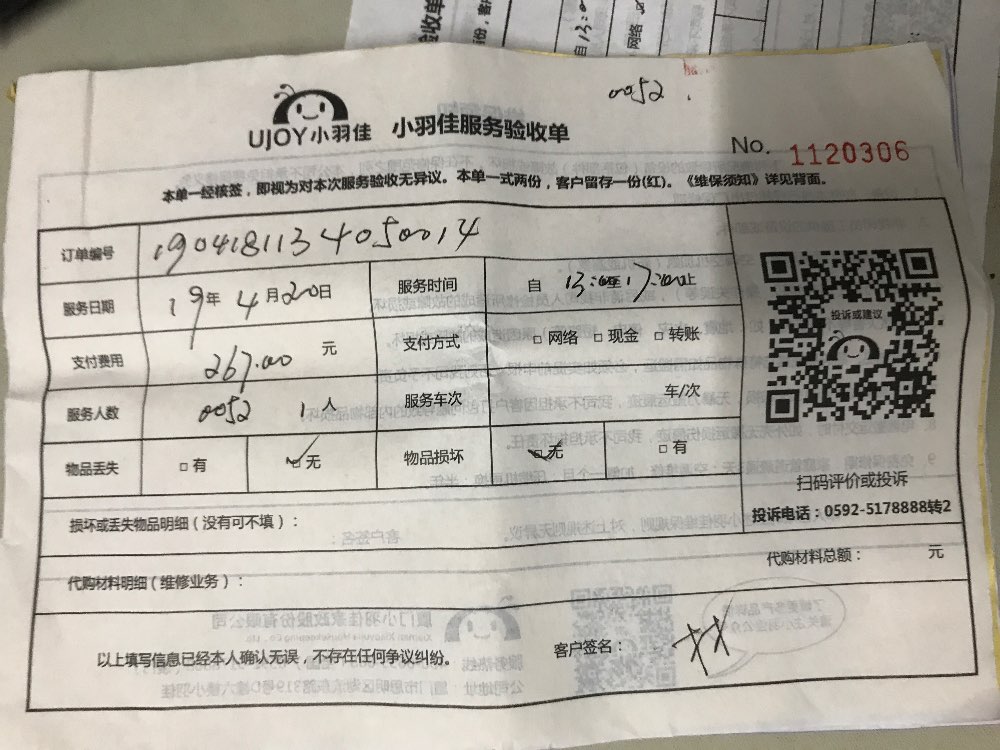 0052
UJOY小羽佳 小羽佳服务验收单
No. 1120306
本单一经核签，即视为对本次服务验收无异议。本单一式两份，客户留存一份(红)。《维保须知》详见背面。
订单编号 1904181134050014
服务日期 19年 4月20日 服务时间 自 13:00至17:00止
支付费用 267.00 元 支付方式 □ 网络 □ 现金 □ 转账
服务人数 0052 1人 服务车次 车/次
物品丢失 □ 有 ☑ 无 物品损坏 ☑ 无 □ 有
投诉或建议
扫码评价或投诉
投诉电话：0592-5178888转2
损坏或丢失物品明细（没有可不填）：
代购材料明细（维修业务）： 代购材料总额： 元
以上填写信息已经本人确认无误，不存在任何争议纠纷。 客户签名： 林